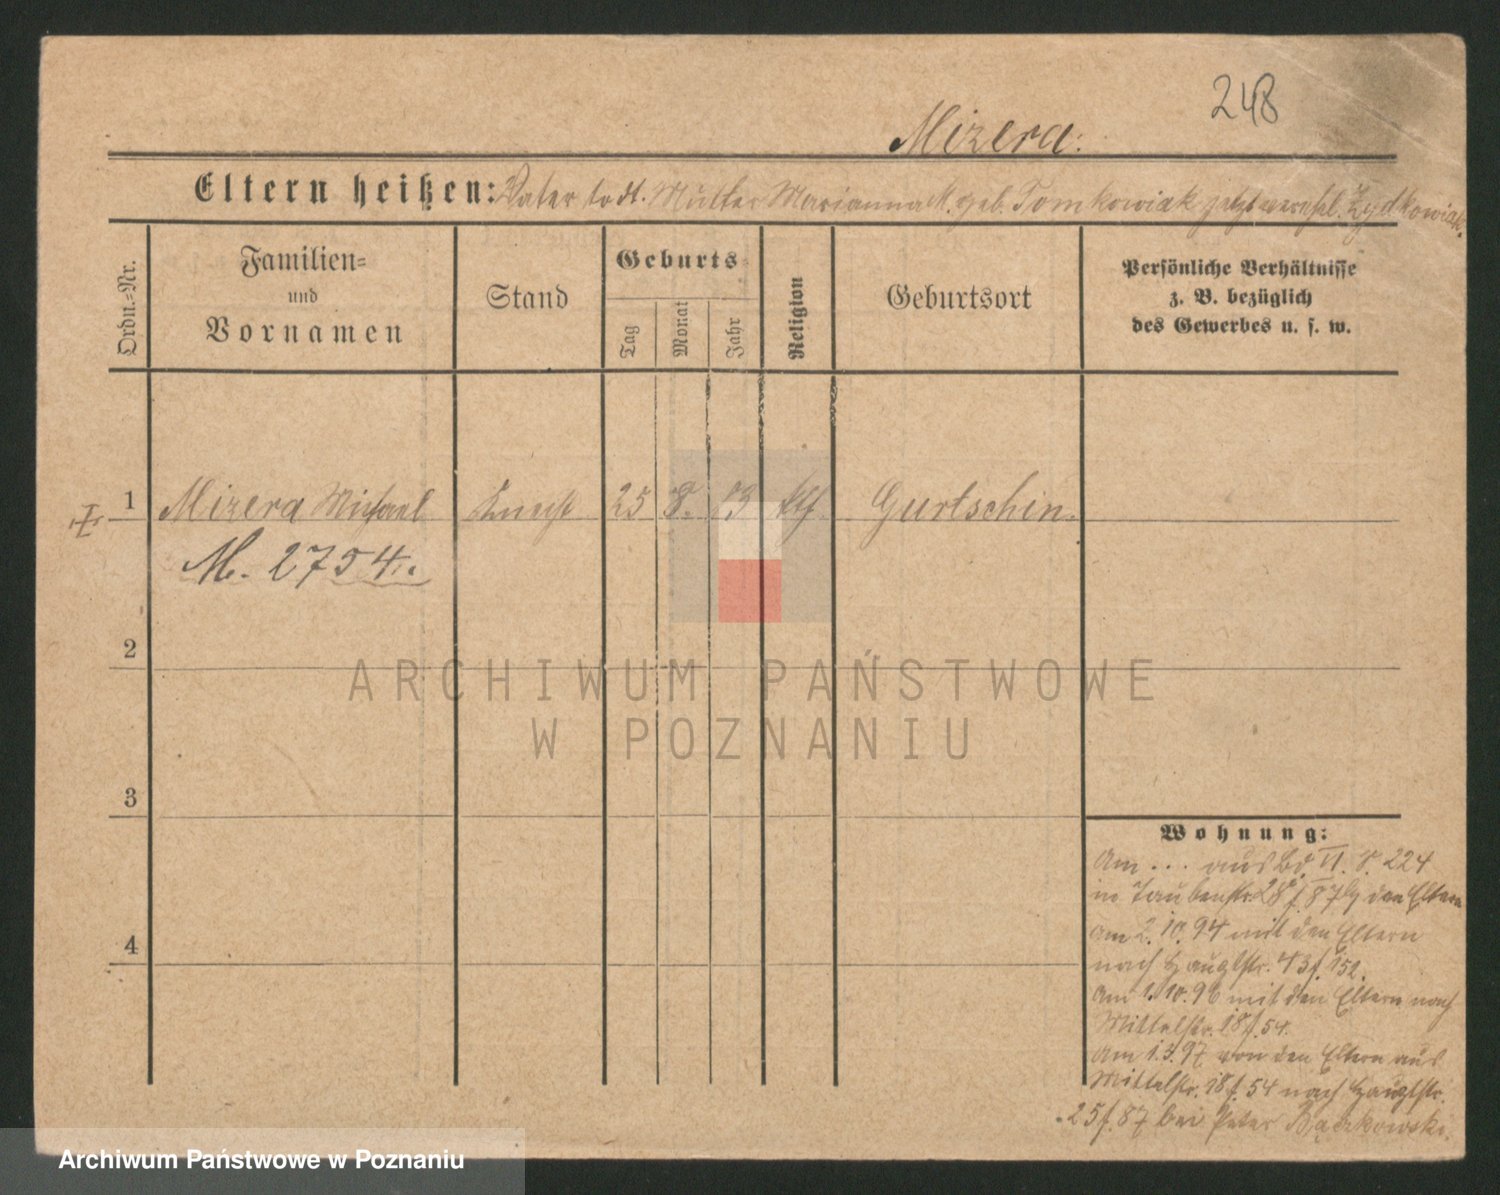 248
Mizera.
Eltern heißen: Vater todt. Mutter Marianna M. geb. Tomkowiak jetzt verehl. Zydkowiak.
Ordn.=Nr.
Familien=
und
Vornamen
Stand
Geburts=
Tag
Monat
Jahr
Religion
Geburtsort
Persönliche Verhältnisse
z. B. bezüglich
des Gewerbes u. s. w.
1 Mizera Michael Knecht 25 8. kth. Gurtschin.
M. 2754.
2
3
4
Wohnung:
Am ... aus Bd. VI. S. 224
in Taubenstr. 28 f. 87 den Eltern
am 2.10.94 mit den Eltern
nach Hauptstr. 43 f. 152.
Am 1.10.96 mit den Eltern nach
Mittelstr. 18 f. 54.
Am 1.3.97 von den Eltern aus
Mittelstr. 18 f. 54 nach Hauptstr.
25 f. 87 bei Peter Bączkowski.
ARCHIWUM PAŃSTWOWE
W POZNANIU
Archiwum Państwowe w Poznaniu